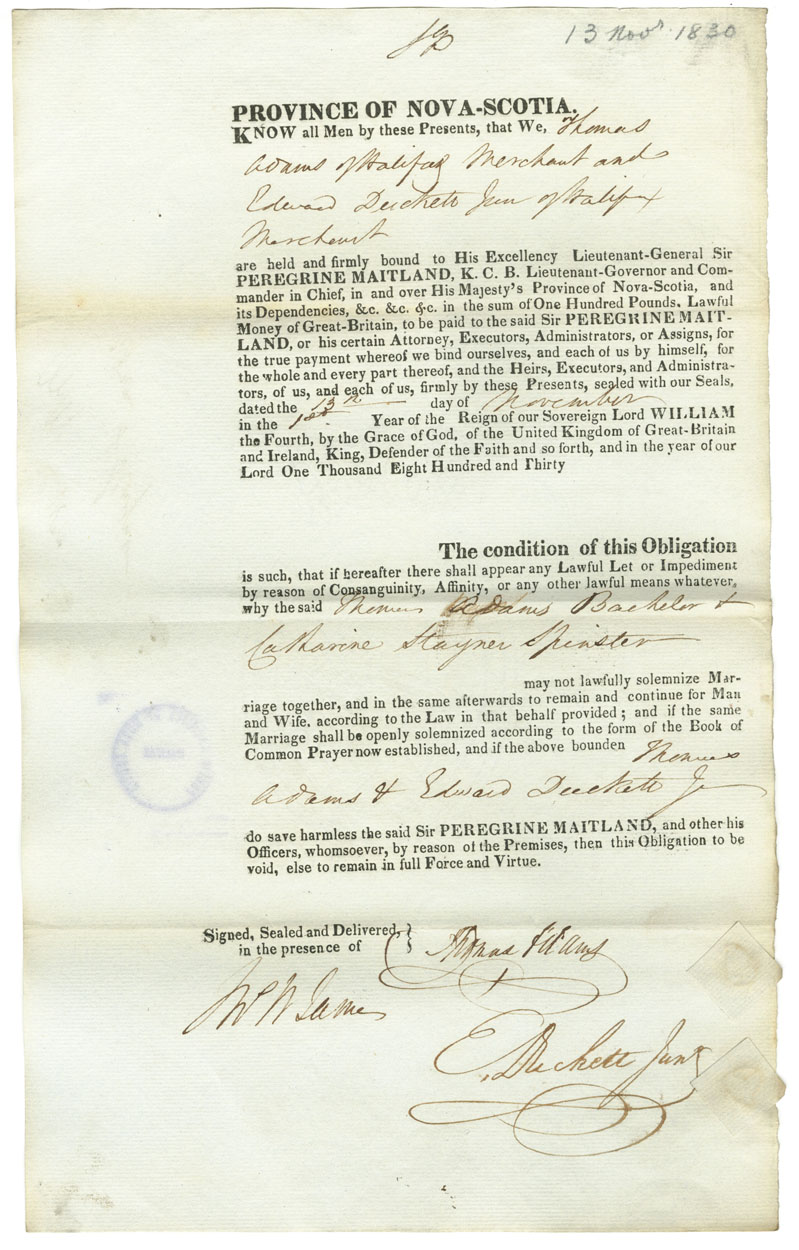 13 Novr 1830
PROVINCE OF NOVA-SCOTIA.
KNOW all Men by these Presents, that We, Thomas
Adams of Halifax Merchant and
Edward Duckett Jun of Halifax
Merchant
are held and firmly bound to His Excellency Lieutenant-General Sir
PEREGRINE MAITLAND, K. C. B. Lieutenant-Governor and Com-
mander in Chief, in and over His Majesty's Province of Nova-Scotia, and
its Dependencies, &c. &c. &c. in the sum of One Hundred Pounds. Lawful
Money of Great-Britain, to be paid to the said Sir PEREGRINE MAIT-
LAND, or his certain Attorney, Executors, Administrators, or Assigns, for
the true payment whereof we bind ourselves, and each of us by himself, for
the whole and every part thereof, and the Heirs, Executors, and Administra-
tors, of us, and each of us, firmly by these Presents, sealed with our Seals,
dated the 13th day of November
in the 1st Year of the Reign of our Sovereign Lord WILLIAM
the Fourth, by the Grace of God, of the United Kingdom of Great-Britain
and Ireland, King, Defender of the Faith and so forth, and in the year of our
Lord One Thousand Eight Hundred and Thirty
The condition of this Obligation
is such, that if hereafter there shall appear any Lawful Let or Impediment
by reason of Consanguinity, Affinity, or any other lawful means whatever,
why the said Thomas Adams Bachelor &
Catharine Stayner Spinster
may not lawfully solemnize Mar-
riage together, and in the same afterwards to remain and continue for Man
and Wife, according to the Law in that behalf provided ; and if the same
Marriage shall be openly solemnized according to the form of the Book of
Common Prayer now established, and if the above bounden Thomas
Adams & Edward Duckett Jr
do save harmless the said Sir PEREGRINE MAITLAND, and other his
Officers, whomsoever, by reason of the Premises, then this Obligation to be
void, else to remain in full Force and Virtue.
Signed, Sealed and Delivered
in the presence of
Thomas Adams
W James
E. Duckett Junr